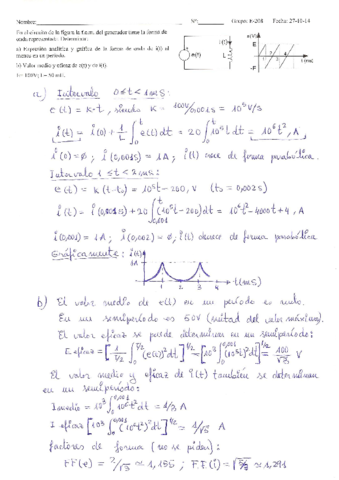 Nombre: Nº: Grupo: E-201 Fecha: 27-11-14
En el circuito de la figura la f.e.m. del generador tiene la forma de
onda representada. Determinar:
a) Expresión analítica y gráfica de la forma de onda de i(t) al
menos en un período.
b) Valor medio y eficaz de e(t) y de i(t).
E= 100V; L= 50 mH.
e(t) i(t) L e(V) E -E t (ms)
a) Intervalo 0 ≤ t < 1 mS:
e(t) = K·t , siendo K = 100V/0,001s = 10⁵ V/s
i(t) = i(0) + 1/L ∫₀ᵗ e(t)dt = 20 ∫₀ᵗ 10⁵t dt = 10⁶t², A
i(0) = ∅ ; i(0,001s) = 1A ; i(t) crece de forma parabólica.
Intervalo 1 ≤ t < 2 ms:
e(t) = K(t-t₀) = 10⁵t - 200, V (t₀ = 0,002s)
i(t) = i(0,001s) + 20 ∫ (10⁵t - 200)dt = 10⁶t² - 4000t + 4, A
i(0,001) = 1A ; i(0,002) = ∅ ; i(t) decrece de forma parabólica
Gráficamente: i(A) 1 2 3 4 t(mS)
b) El valor medio de e(t) en un período es nulo.
En un semiperíodo es 50V (mitad del valor máximo).
El valor eficaz se puede determinar en un semiperíodo:
E eficaz = [1/(T/2) ∫₀ (e(t))² dt]^1/2 = [10³ ∫₀^0,001 (10⁵t)² dt]^1/2 = 100/√3 V
El valor medio y eficaz de i(t) también se determinan
en un semiperíodo:
I medio = 10³ ∫₀^0,001 10⁶t² dt = 1/3 A
I eficaz [10³ ∫₀^0,001 (10⁶t²)² dt]^1/2 = 1/√5 A
factores de forma (no se piden):
FF(e) = 2/√3 ≃ 1,155 ; FF(i) =